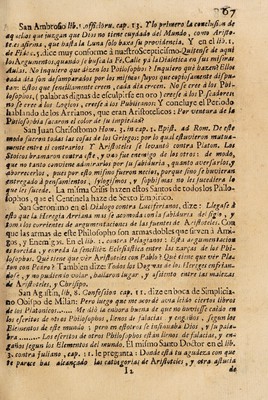 67
San Ambrosio lib. 1. officioru. cap. 13. Y lo primero la conclusion de
aquellos que juzgan que Dios no tiene cuydado del Mundo, como Aristo-
tes afirma, que hasta la Luna solo baxa su providencia. Y en el lib. 1.
de Fide c. 5. dice muy conforme à nuestro Scepticismo. Quitese de aqui
los Argumentos, quando se busca la Fè. Calle yà la Dialetica en sus mismas
Aulas. No inquiero que dizen los Philosophos? Inquiero que hazen? Ellos
cada dia son desamparados por los mismos suyos que copiosamente dispu-
tan: Estos que sencillamente creen, cada dia creen. No se cree à los Phi-
losophos, (palabras dignas de esculpirlas en oro) creese à los Pescadores
no se cree à los Logicos, creese à los Publicanos: Y concluye el Periodo
hablando de los Arrianos, que eran Aristotelicos: Por ventura de la
Philosophia sacaron el color de su impiedad?
San Juan Chrisostomo Hom. 3. in cap. 1. Epist. ad Rom. De este
modo fueron todas las cosas de los Griegos: por lo qual estuvieron mutua-
mente entre sì contrarios Y Aristoteles se levantò contra Platon. Los
Stoicos bramaron contra este, y assi fue enemigo de los otros: de modo,
que no tanto conviene admirarlos por su sabiduria, quanto aversarlos, y
aborrecerlos, pues por esto mismo fueron necios, porque sino se huvieran
entregado à pensamientos, sylogismos, y sophismas no les sucediera lo
que les sucede. La misma Crisis hazen estos Santos de todos los Philo-
sophos, que el Centinela haze de Sexto Empirico.
San Geronimo en el Dialogo contra Luciferianos, dice: Llegase à
esto que la Heregia Arriana mas se acomoda con la sabiduria del siglo, y
toma los corrientes de argumentaciones de las fuentes de Aristoteles. Con
que las armas de este Philosopho son armas dobles que sirven à Ami-
gos, y Enemigos. En el lib. 1. contra Pelagianos: Esta argumentacion
es torcida, y enreda la sencillez Eclesiastica entre las zarças de los Phi-
losophos. Què tiene que vèr Aristoteles con Pablo? Què tiene que vèr Pla-
ton con Pedro? Y tambien dize: Todos los Dogmas de los Hereges
de Aristoteles, y Chrisipo.
San Agustin, lib. 8. Confession. cap. 11. dize en boca de Simplicia-
no Obispo de Milan: Pero luego que me acordè avia leìdo ciertos libros
de los Platonicos...... Me diò la enorabuena de que no huviesse caìdo en
los escritos de otros Philosophos, llenos de falacias y engaños, segun los
Elementos de este mundo; pero en estotros se insinuaba Dios, y su pala-
bra....... Los escritos de otros Philosophos estàn llenos de falacias, y en-
gaños segun los Elementos del mundo. El mismo Santo Doctor en el lib.
3. contra Juliano, cap. 11. le pregunta: Donde està tu agudeza con que
te parece has alcançado las cathegorias de Aristoteles, y otra astucia
I 2
de